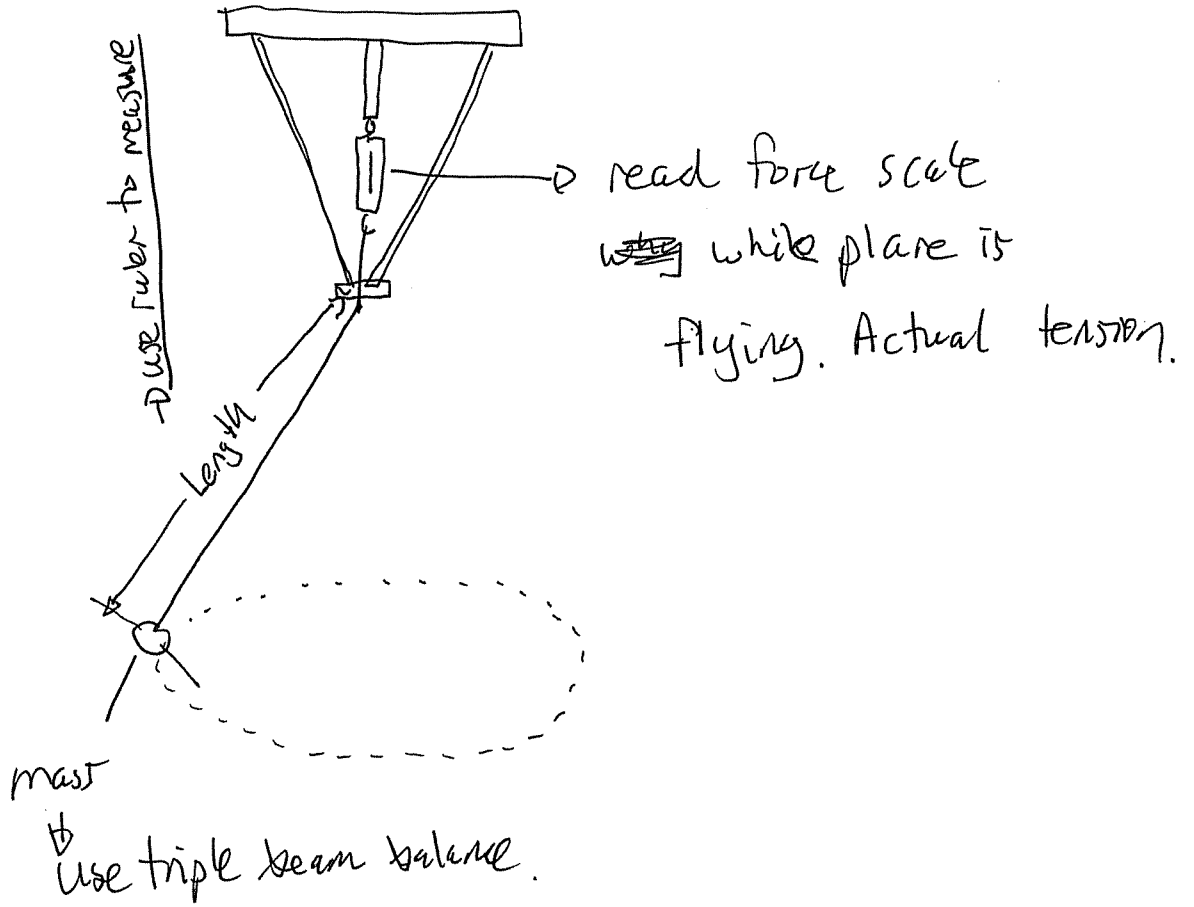 → use ruler to measure
→ read force scale
while plane is
flying. Actual tension.
Length
mass
↓
use triple beam balance.